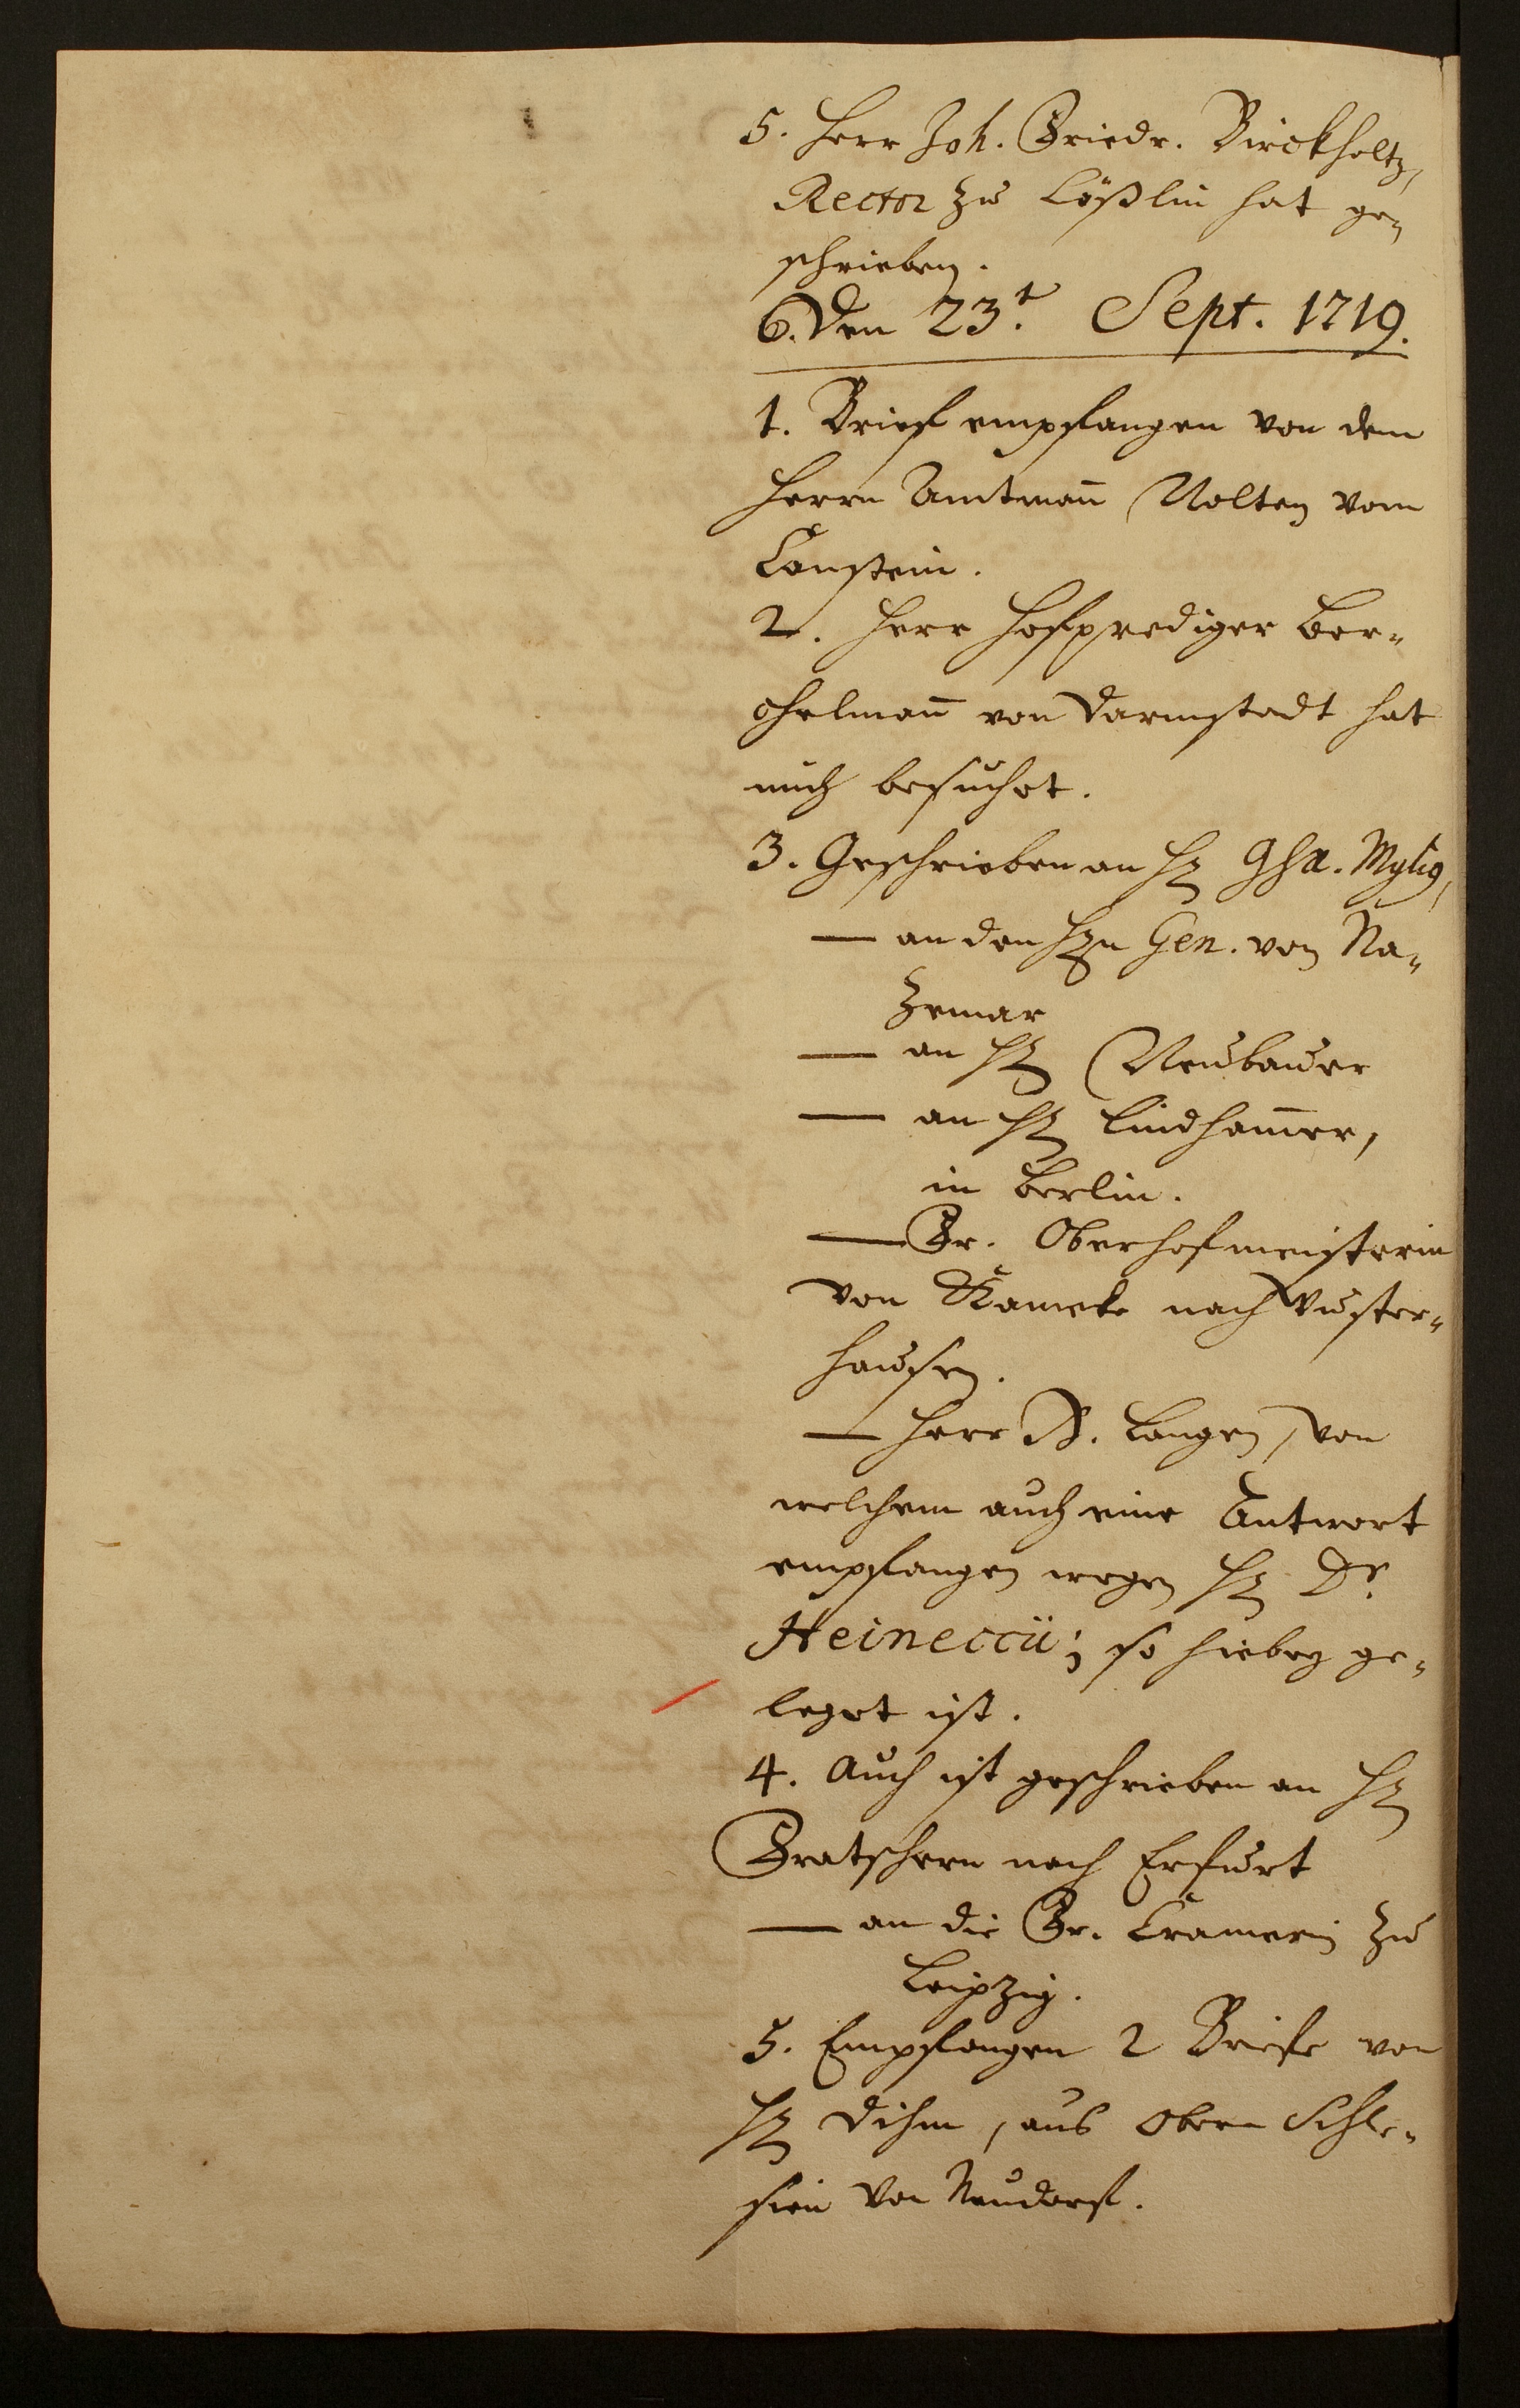 5. Herr Joh. Friedr. Birckholtz,
Rector zu Cößlin hat ge-
schrieben.
6. Den 23t. Sept. 1719.
1. Brief empfangen von dem
Herrn Amtman̅ Nolten vom
Canstein.
2. Herr Hofprediger Ber-
chelman̅ von Darmstadt hat
mich besuchet.
3. Geschrieben an H. Mylig,
— an den Hn Gen. von Na-
zemar
— an H. Neubauer
— an H. Lindham̅er,
in Berlin.
— Fr. Oberhofmeisterin
von Kameke nach Wuster-
hausen.
— Herr D. Langen, von
welchem auch eine Antwort
empfangen wegen H. Dr.
Heineccii; so hiebey ge-
leget ist.
4. Auch ist geschrieben an H.
Fratschern nach Erfurt
— an die Fr. Cramerin zu
Leipzig.
5. Empfangen 2 Briefe von
H. Dihm, aus Ober Schle-
sien von Neudorf.